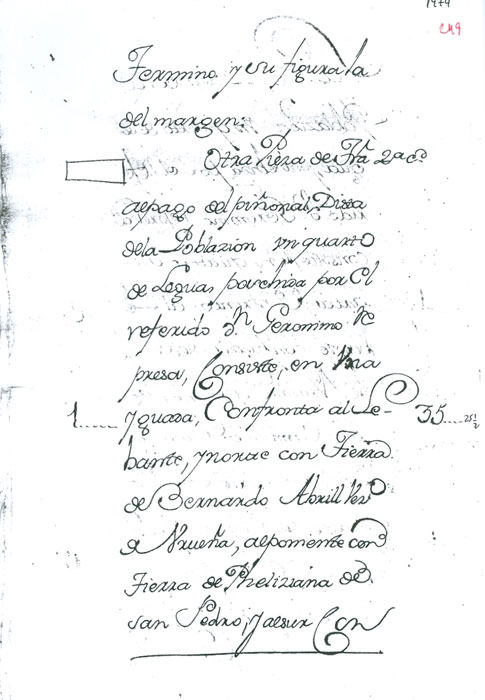 1979
Termino, y su figura la
del margen.
Otra Pieza de Trrã 2a
al pago del piñonial, Dista
de la Poblazion un quarto
de Legua, por el
referido Dn. Geronimo
presa, Consiste, en Una
1 Yguada, Confronta al Le- 35
bante, y norte con Tierra
de Bernardo Abrill Vezo
de Yrueña, al poniente con
Tierra de Pheliziana de
San Pedro, y al sur Con